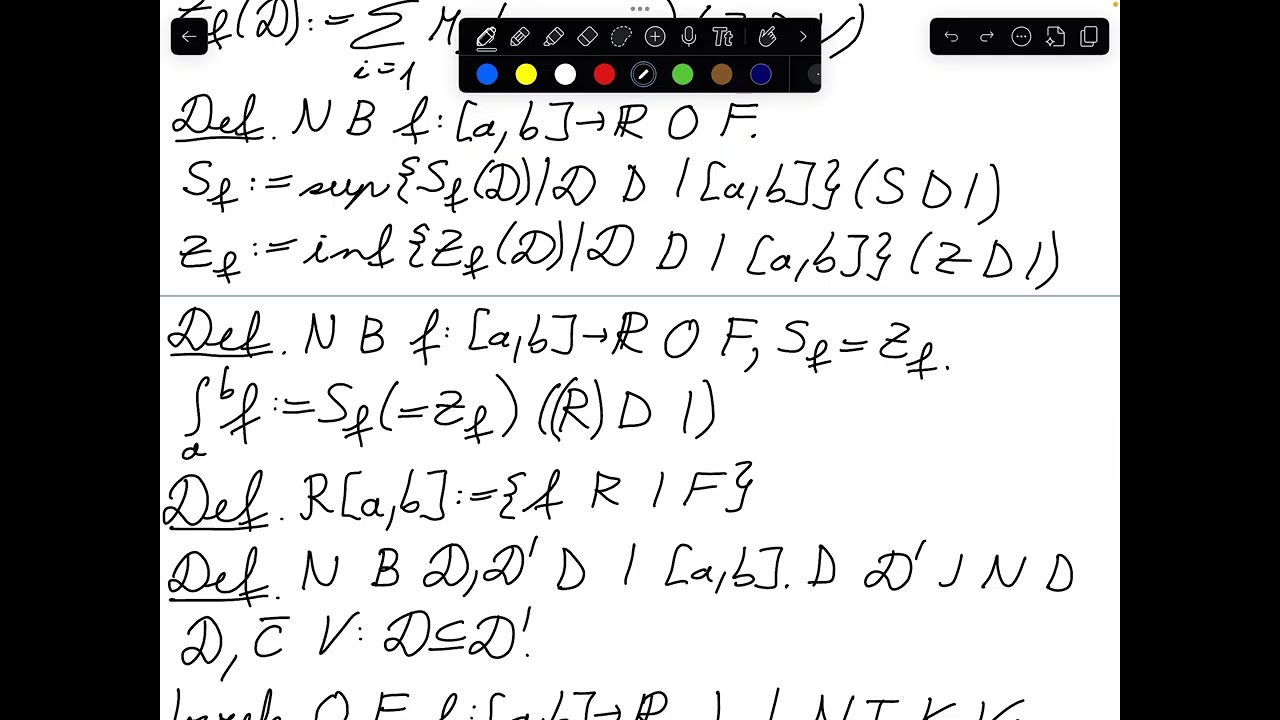 Z_f(D):=∑_{i=1} M
Def. N B f:[a,b]→R O F.
S_f:=sup{S_f(D)|D D I [a,b]} (S D I)
Z_f:=inf{Z_f(D)|D D I [a,b]} (Z D I)
Def. N B f:[a,b]→R O F, S_f=Z_f.
∫_a^b f:=S_f(=Z_f) ((R) D I)
Def. R[a,b]:={f R I F}
Def. N B D,D' D I [a,b]. D D' J N D
D, C̄ V: D⊆D'.
Tt